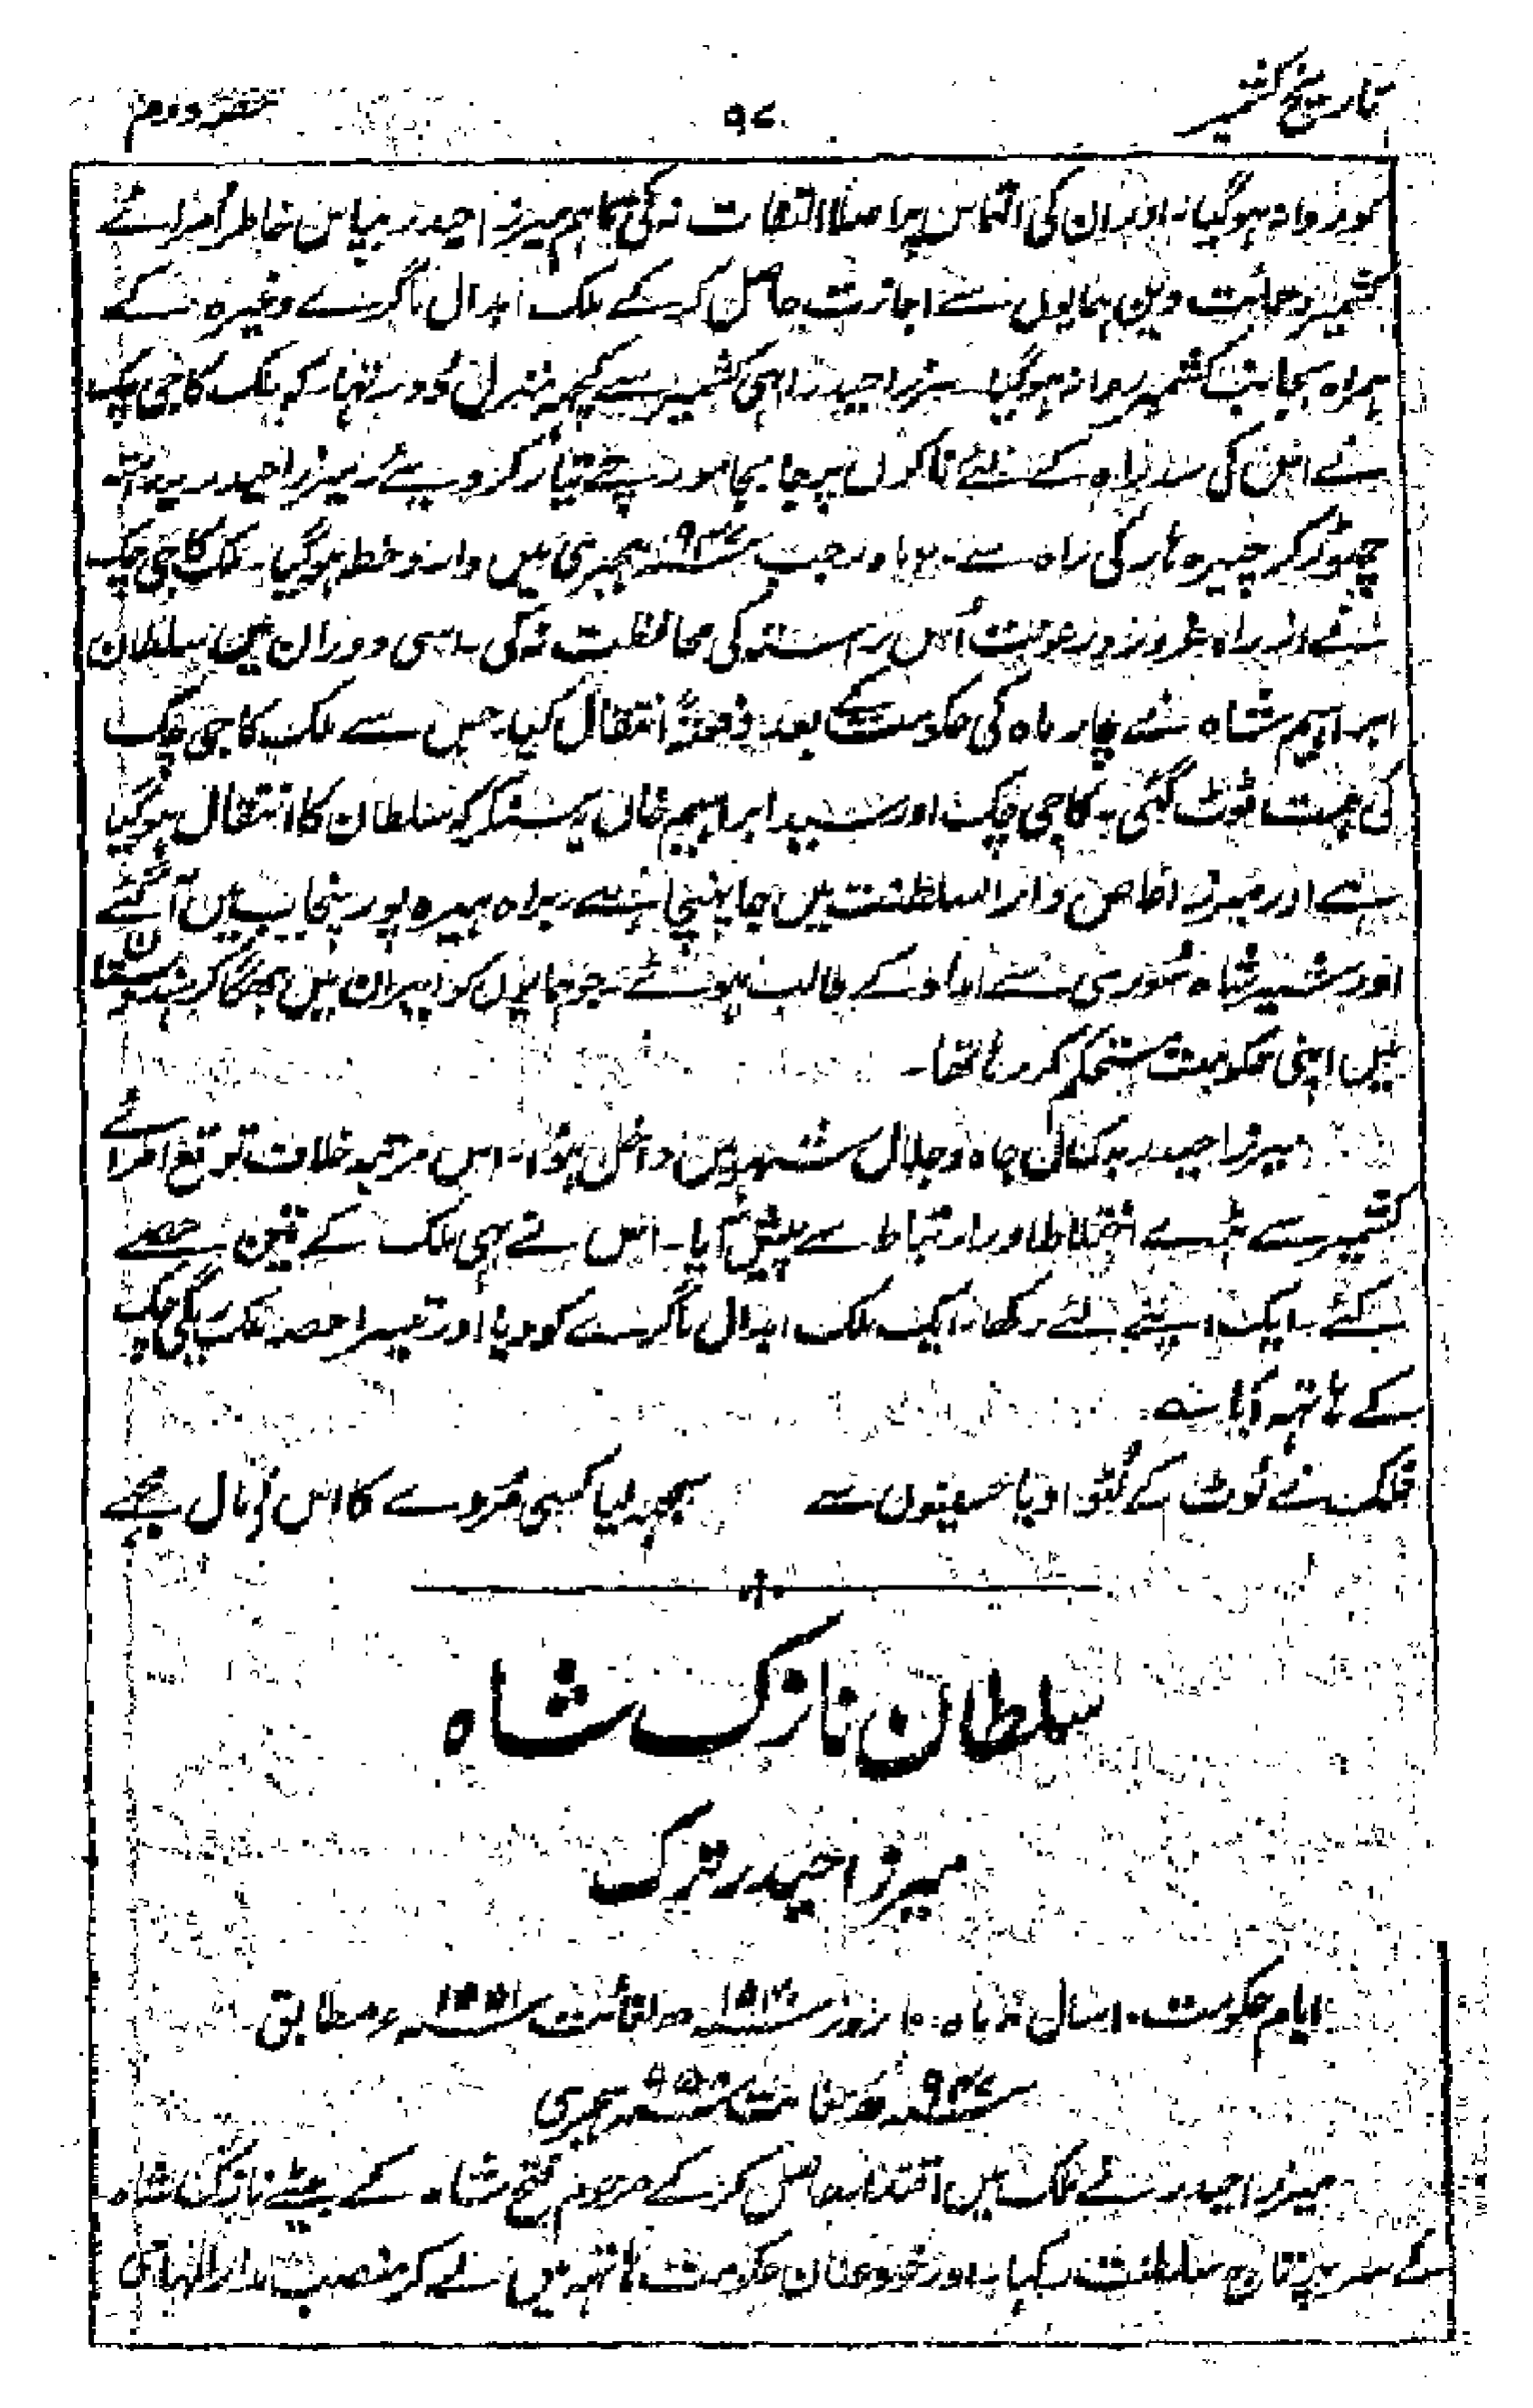 تاریخ کشمیر
۹۷
حصہ دوم
کو روانہ ہوگیا۔ اور ان کی التماس پر اصلا التفات نہ کی تاہم میرزا حیدر بپاس خاطر اُمرائے
کشمیر وحمایت وہین ہمایوں سے اجازت حاصل کرکے ملک ابدال ماگرے وغیرہ کے
ہمراہ بجانب کشمیر روانہ ہوگیا۔ میرزا حیدر ابھی کشمیر سے کچھ منزل دُور تہا کہ ملک کاجی چک
نے اس کی سدِ راہ کے لئے ناکوں پر جا بجا مورچے تیار کر دیئے۔ میرزا حیدر یہ راستہ
چھوڑ کر چیرہ ہار کی راہ سے ماہ رجب ۹۴۷ ہجری میں وارد خطہ ہوگیا۔ ملک کاجی چک
نے از راہ غرور و رعونت اُس راستہ کی محافظت نہ کی۔ اسی دوران میں سلطان
ابراہیم شاہ نے چار ماہ کی حکومت کے بعد دفعۃً انتقال کیا۔ جس سے ملک کاجی چک
کی ہمت ٹوٹ گئی۔ کاجی چک اور سید ابراہیم خاں یہ سنکر کہ سلطان کا انتقال ہوگیا
ہے اور میرزا خاص دارالسلطنت میں جا پہنچا ہے۔ براہ ہیرہ پور پنجاب میں آ گئے
اور شیر شاہ سُوری سے امداد کے طالب ہوئے۔ جو ہمایوں کو ایران میں بھگا کر ہندوستان
میں اپنی حکومت مستحکم کر رہا تھا۔
میرزا حیدر بہ کمال جاہ و جلال شہر میں داخل ہوا۔ اس مرتبہ خلاف توقع اُمرائے
کشمیر سے بڑے اختلاط اور ارتباط سے پیش آیا۔ اس نے بھی ملک کے تین حصے
کئے۔ ایک اپنے لئے رکھا۔ ایک ملک ابدال ماگرے کو دیا اور تیسرا حصہ ملک ریگی چک
کے ہاتہہ آیا۔
فلک نے لُوٹ کے لُٹوا دیا حسینوں سے سمجہہ لیا کسی مُردے کا اس نے مال مجھے
سلطان نازک شاہ
میرزا حیدر ترک
ایام حکومت۔ ۱۰ سال ماہ ۱۰ روز ۱۵۴۰ء لغائت ۱۵۵۱ء مطابق
۹۴۷ھ لغائت ۹۵۸ ہجری
میرزا حیدر نے ملک میں اقتدار حاصل کرکے مرحوم فتح شاہ کے بیٹے نازک شاہ
کے سر پر تاج سلطنت رکہا۔ اور خود عنان حکومت ہاتہہ میں لے کر منصب مدارالمہامی